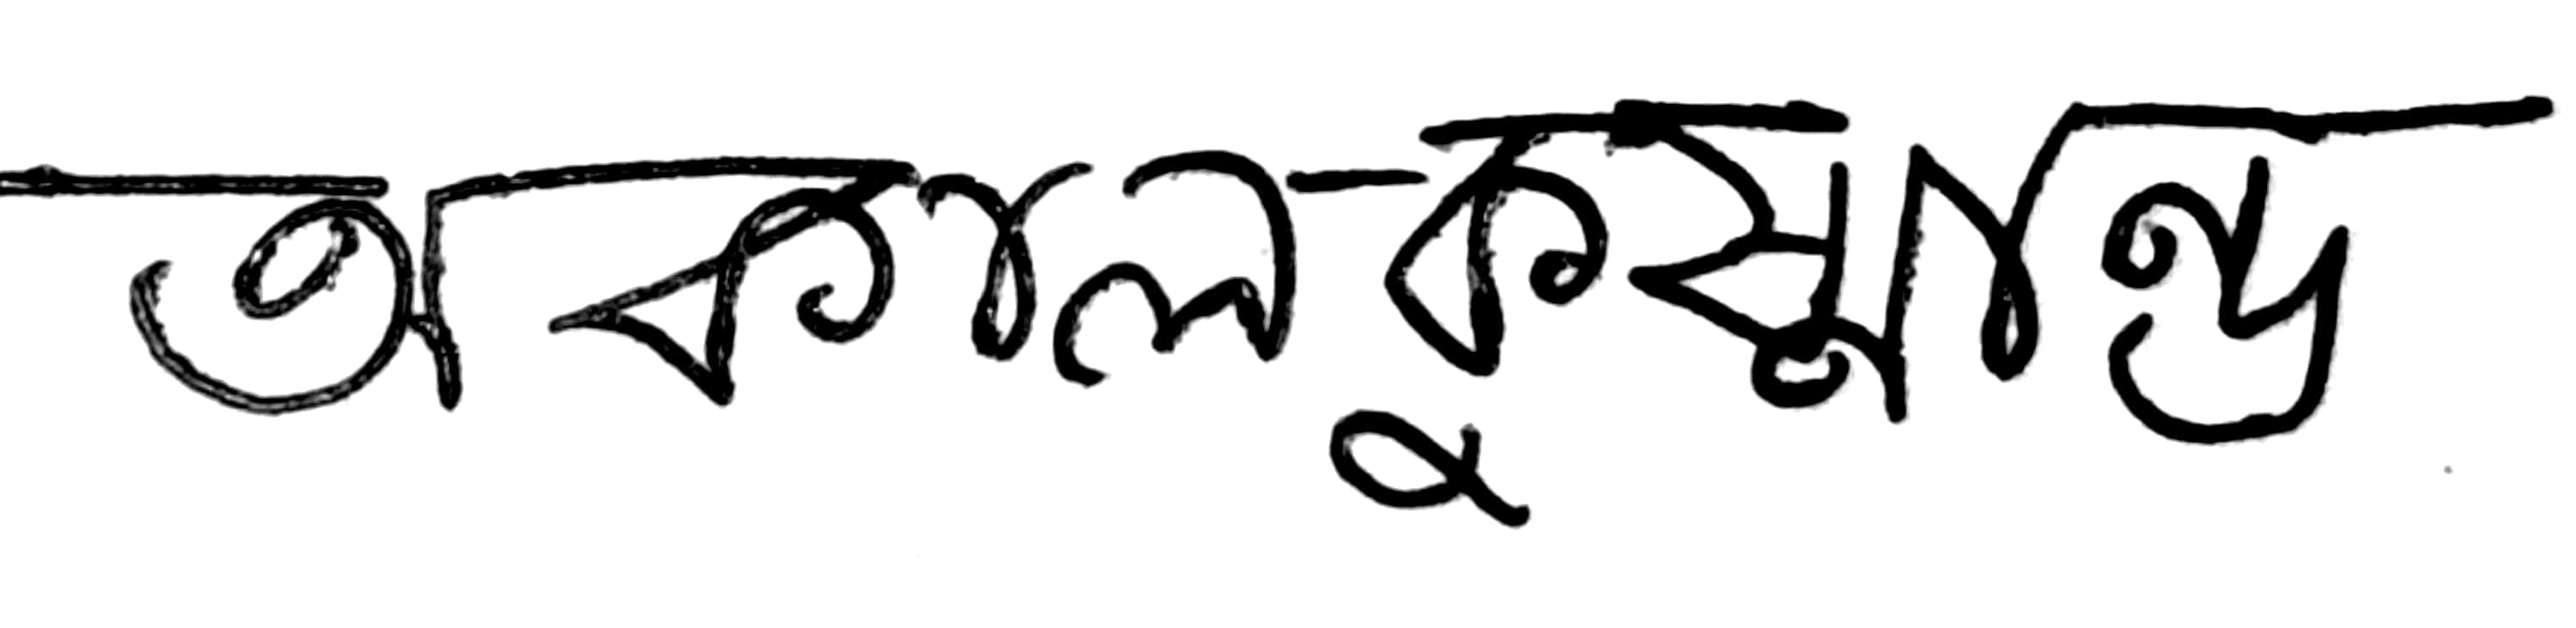 অকালকুষ্মাণ্ড